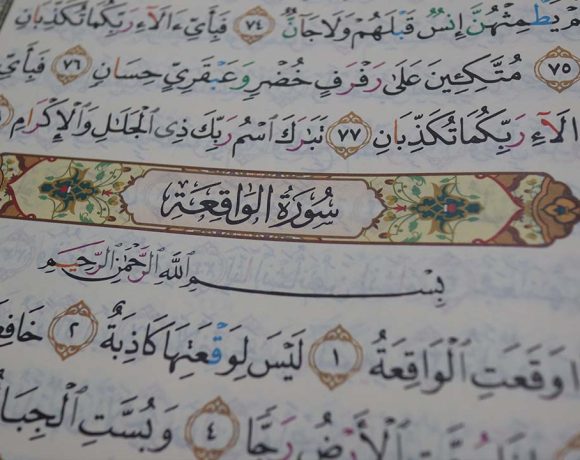 يَطْمِثْهُنَّ إِنسٌ قَبْلَهُمْ وَلَا جَانٌّ ٧٤ فَبِأَيِّ ءَالَآءِ رَبِّكُمَا تُكَذِّبَانِ
٧٥ مُتَّكِئِينَ عَلَىٰ رَفْرَفٍ خُضْرٍ وَعَبْقَرِيٍّ حِسَانٍ ٧٦ فَبِأَيِّ
ءَالَآءِ رَبِّكُمَا تُكَذِّبَانِ ٧٧ تَبَٰرَكَ ٱسْمُ رَبِّكَ ذِى ٱلْجَلَٰلِ وَٱلْإِكْرَامِ
سُورَةُ الوَاقِعَةِ
بِسْمِ ٱللَّهِ ٱلرَّحْمَٰنِ ٱلرَّحِيمِ
وَقَعَتِ ٱلْوَاقِعَةُ ١ لَيْسَ لِوَقْعَتِهَا كَاذِبَةٌ ٢
ٱلْأَرْضُ رَجًّا ٤ وَبُسَّتِ